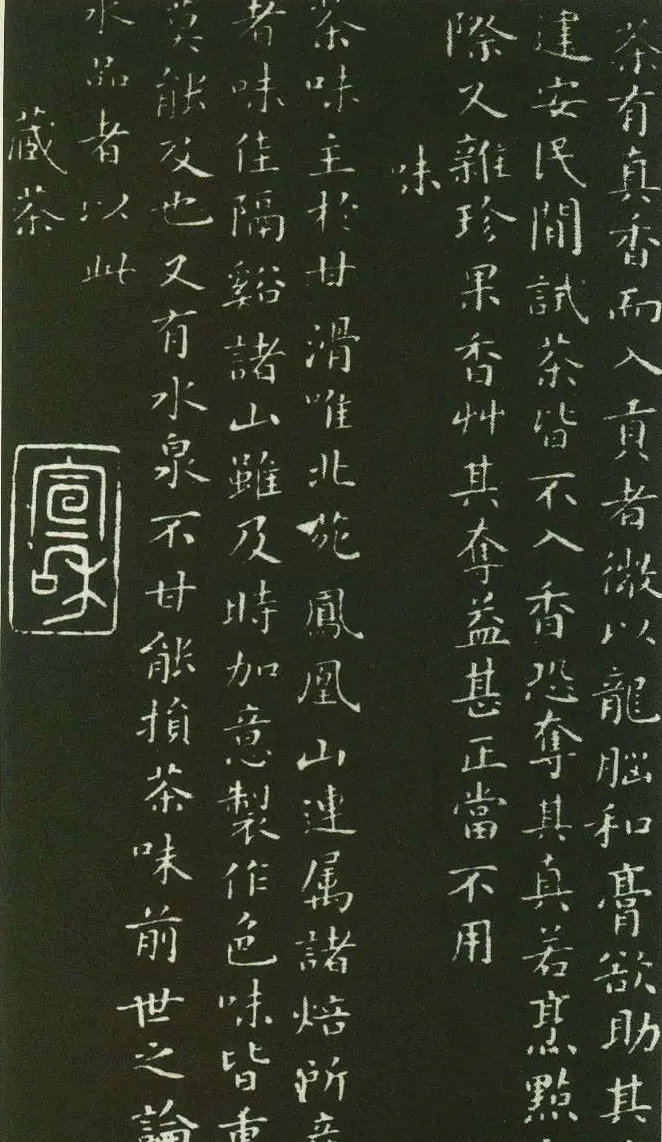 茶有真香而入貢者微以龍腦和膏欲助其
建安民間試茶皆不入香恐奪其真若烹點
際又雜珍果香艸其奪益甚正當不用
味
茶味主於甘滑唯北苑鳳凰山連属諸焙所産
者味佳隔谿諸山雖及時加意製作色味皆重
莫能及也又有水泉不甘能損茶味前世之論
水品者以此
藏茶
宣和